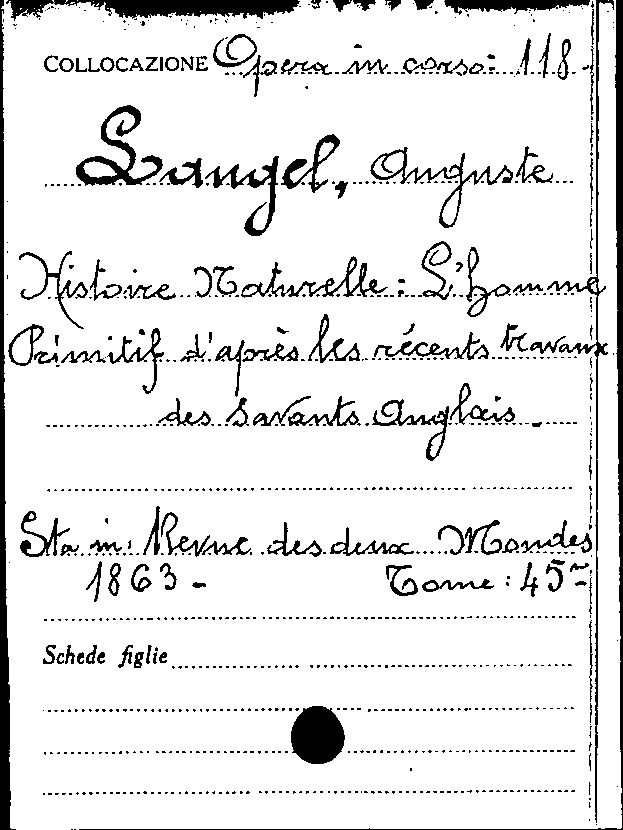 COLLOCAZIONE Opera in corso: 118-
Laugel, Auguste
Histoire Naturelle: L'homme
Primitif d'après les récents travaux
des savants Anglais.
Sta in: Revue des deux Mondes
1863- Tome: 45-
Schede figlie